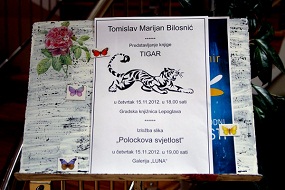 Tomislav Marijan Bilosnić
-----
Predstavljanje knjige
TIGAR
u četvrtak 15.11.2012. u 18.00 sati
Gradska knjižnica Lepoglava
-----
Izložba slika
„Polockova svjetlost”
u četvrtak 15.11.2012. u 19.00 sati
Galerija „LUNA”